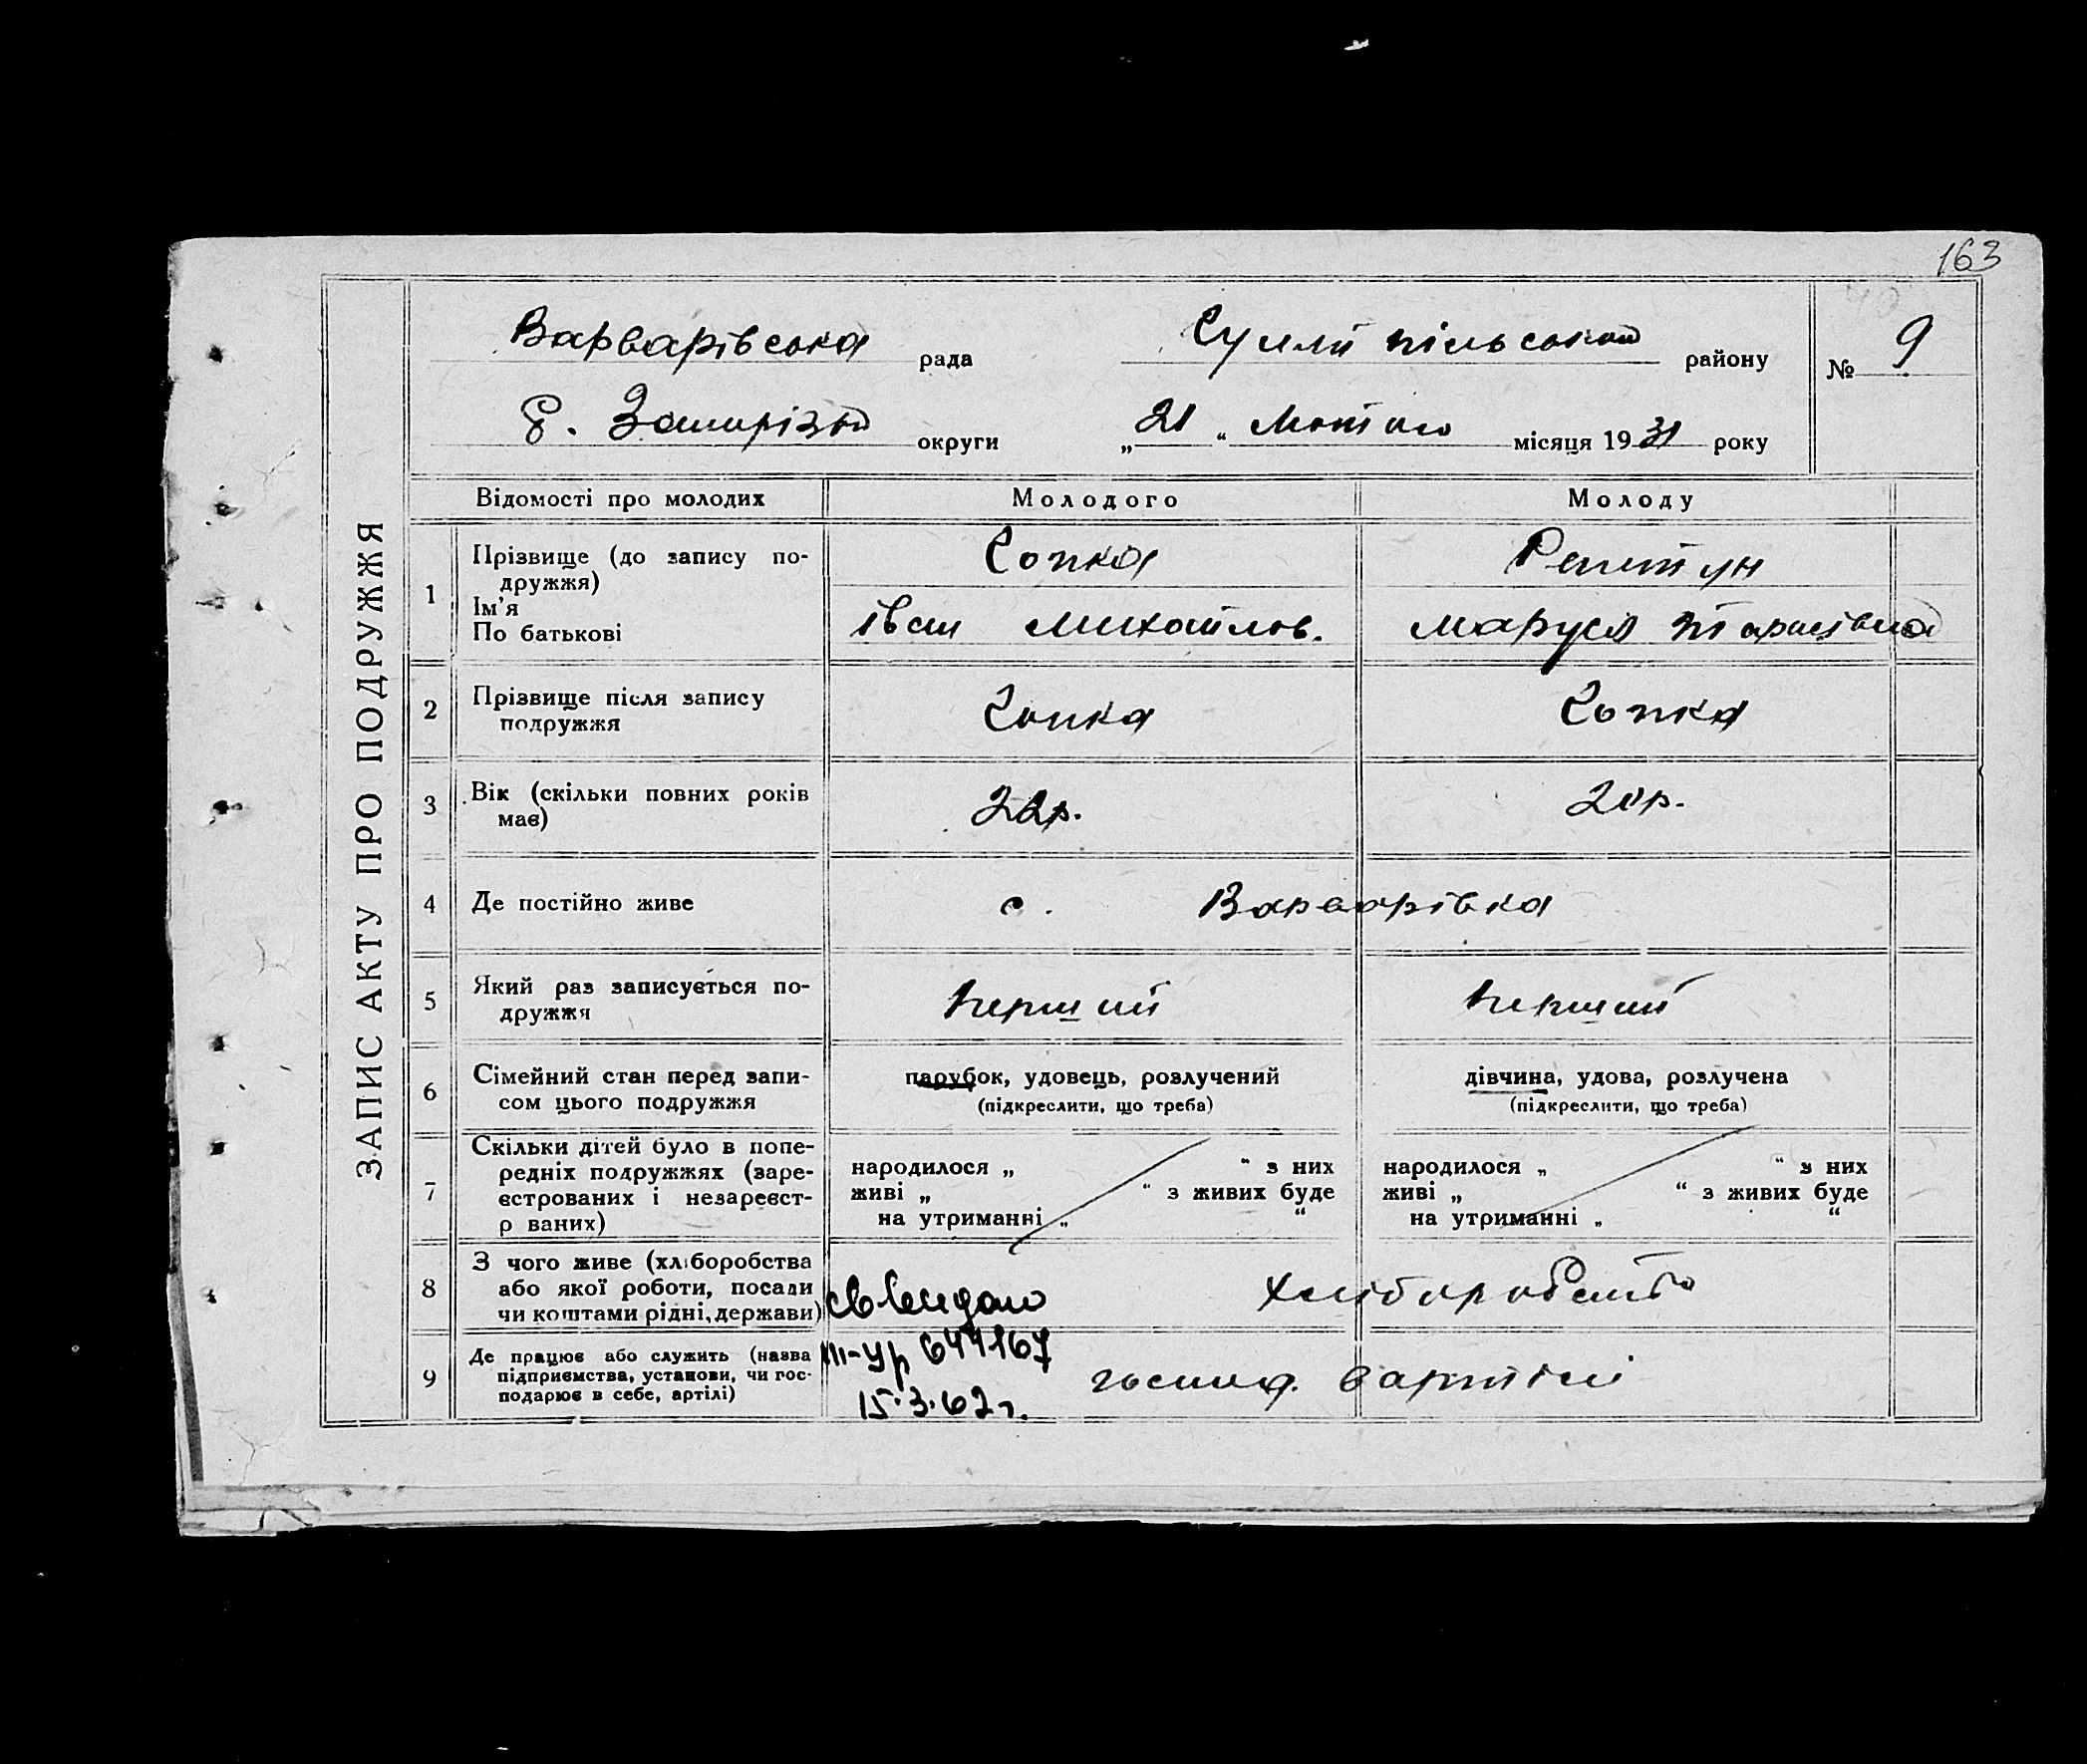 163
ЗАПИС АКТУ ПРО ПОДРУЖЖЯ
Варварівська рада
Гуляй пільський району
№ 9
б. Запорізьк округи
„21“ Лютого місяця 1931 року
Відомості про молодих
Молодого
Молоду
1 Прізвище (до запису по-
дружжя)
Ім'я
По батькові
Сопка
Іван Михайлов.
Репетун
Маруся Тарасівна
2 Прізвище після запису
подружжя
Сопка
Сопка
3 Вік (скільки повних років
має)
22р.
20р.
4 Де постійно живе
с. Варварівка
5 Який раз записується по-
дружжя
перший
перший
6 Сімейний стан перед запи-
сом цього подружжя
парубок, удовець, розлучений
(підкреслити, що треба)
дівчина, удова, розлучена
(підкреслити, що треба)
7 Скільки дітей було в попе-
редніх подружжях (заре-
єстрованих і незареєст-
р ваних)
народилося „ “ з них
живі „ “ з живих буде
на утриманні „ “
народилося „ “ з них
живі „ “ з живих буде
на утриманні „ “
8 З чого живе (хліборобства
або якої роботи, посади
чи коштами рідні, держави)
хліборобство
9 Де працює або служить (назва
підприємства, установи, чи гос-
подарює в себе, артілі)
III-УР 644167
15.3.62г.
господ. в артілі